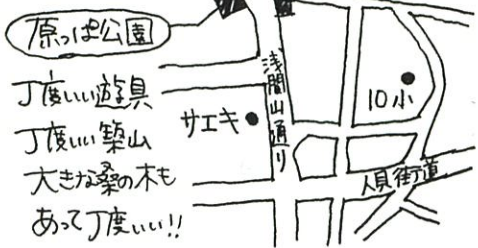 原っぱ公園
丁度いい遊具
丁度いい築山
大きな桑の木も
あって丁度いい!!
サエキ
浅間山通り
10小
人見街道